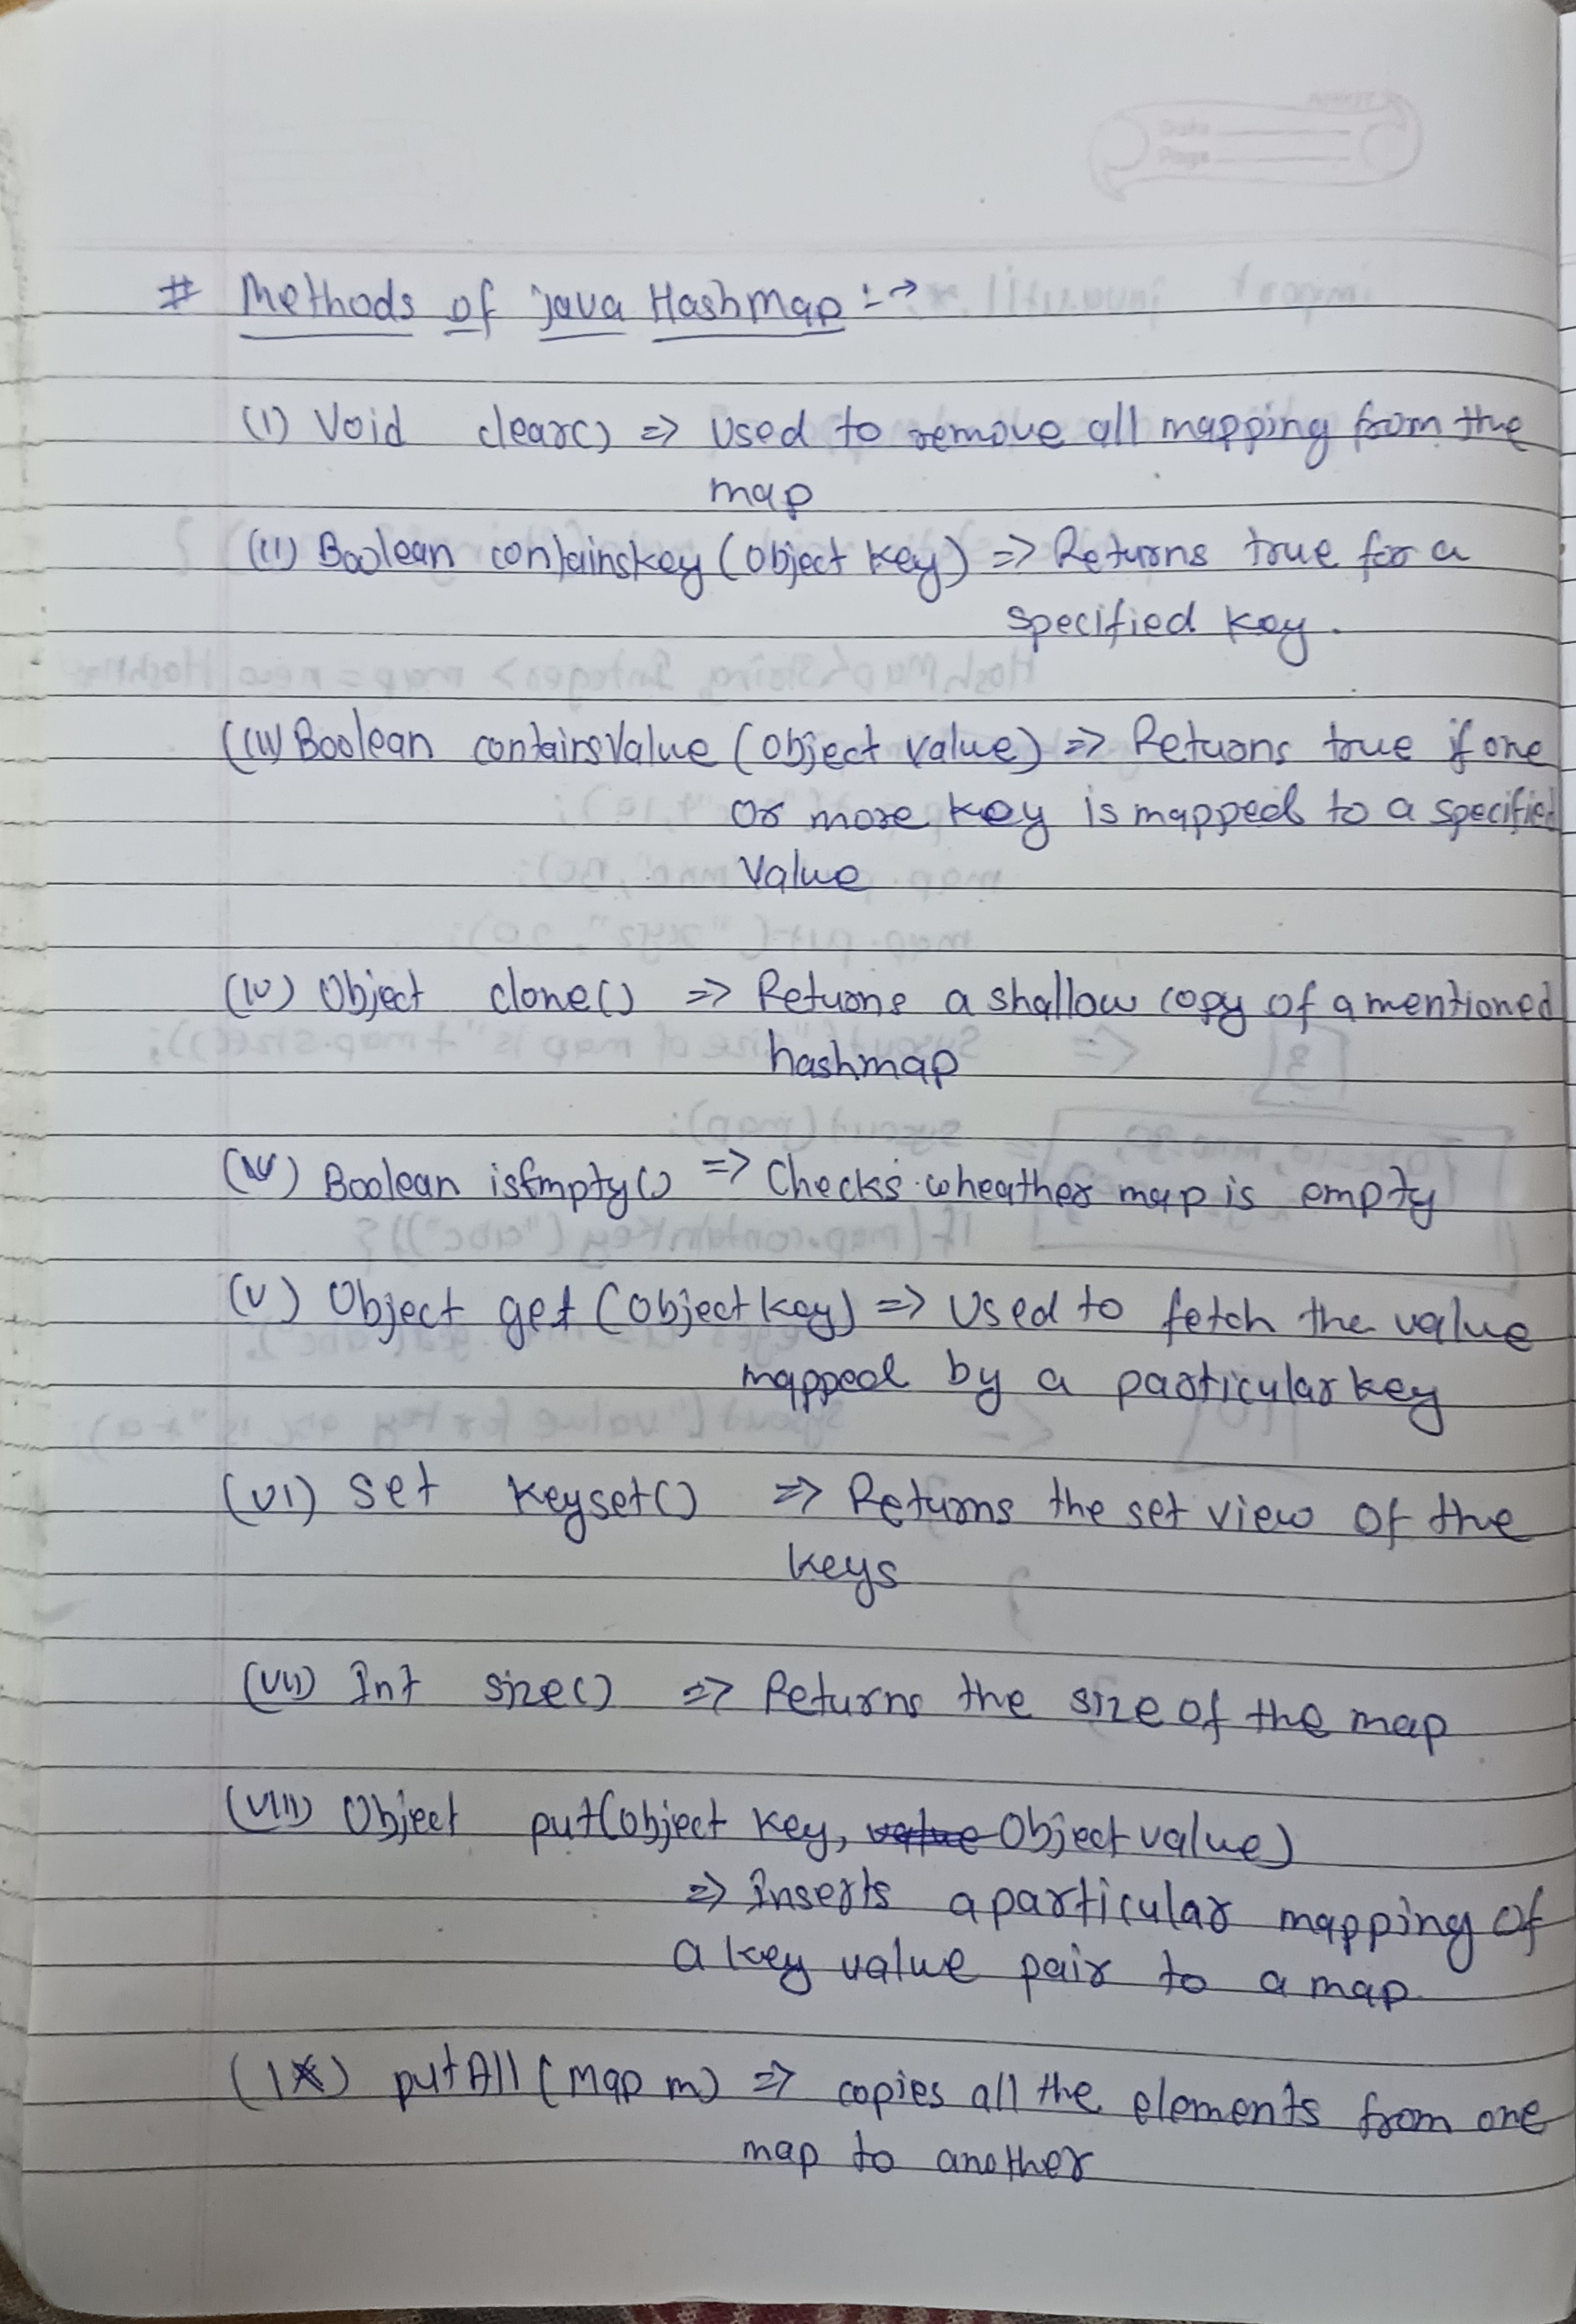 # Methods of java HashMap :->
(i) Void clear() => Used to remove all mapping from the
map
(ii) Boolean containskey (Object key) => Returns true for a
specified key.
(iii) Boolean containsValue (Object value) => Returns true if one
or more key is mapped to a specified
value
(iv) Object clone() => Returns a shallow copy of a mentioned
hashmap
(iv) Boolean isEmpty() => Checks wheather map is empty
(v) Object get (Object key) => Used to fetch the value
mapped by a particular key
(vi) Set keyset() => Returns the set view of the
keys
(vii) Int size() => Returns the size of the map
(viii) Object put(object key, value Object value)
=> Inserts a particular mapping of
a key value pair to a map
(ix) putAll (map m) => copies all the elements from one
map to another